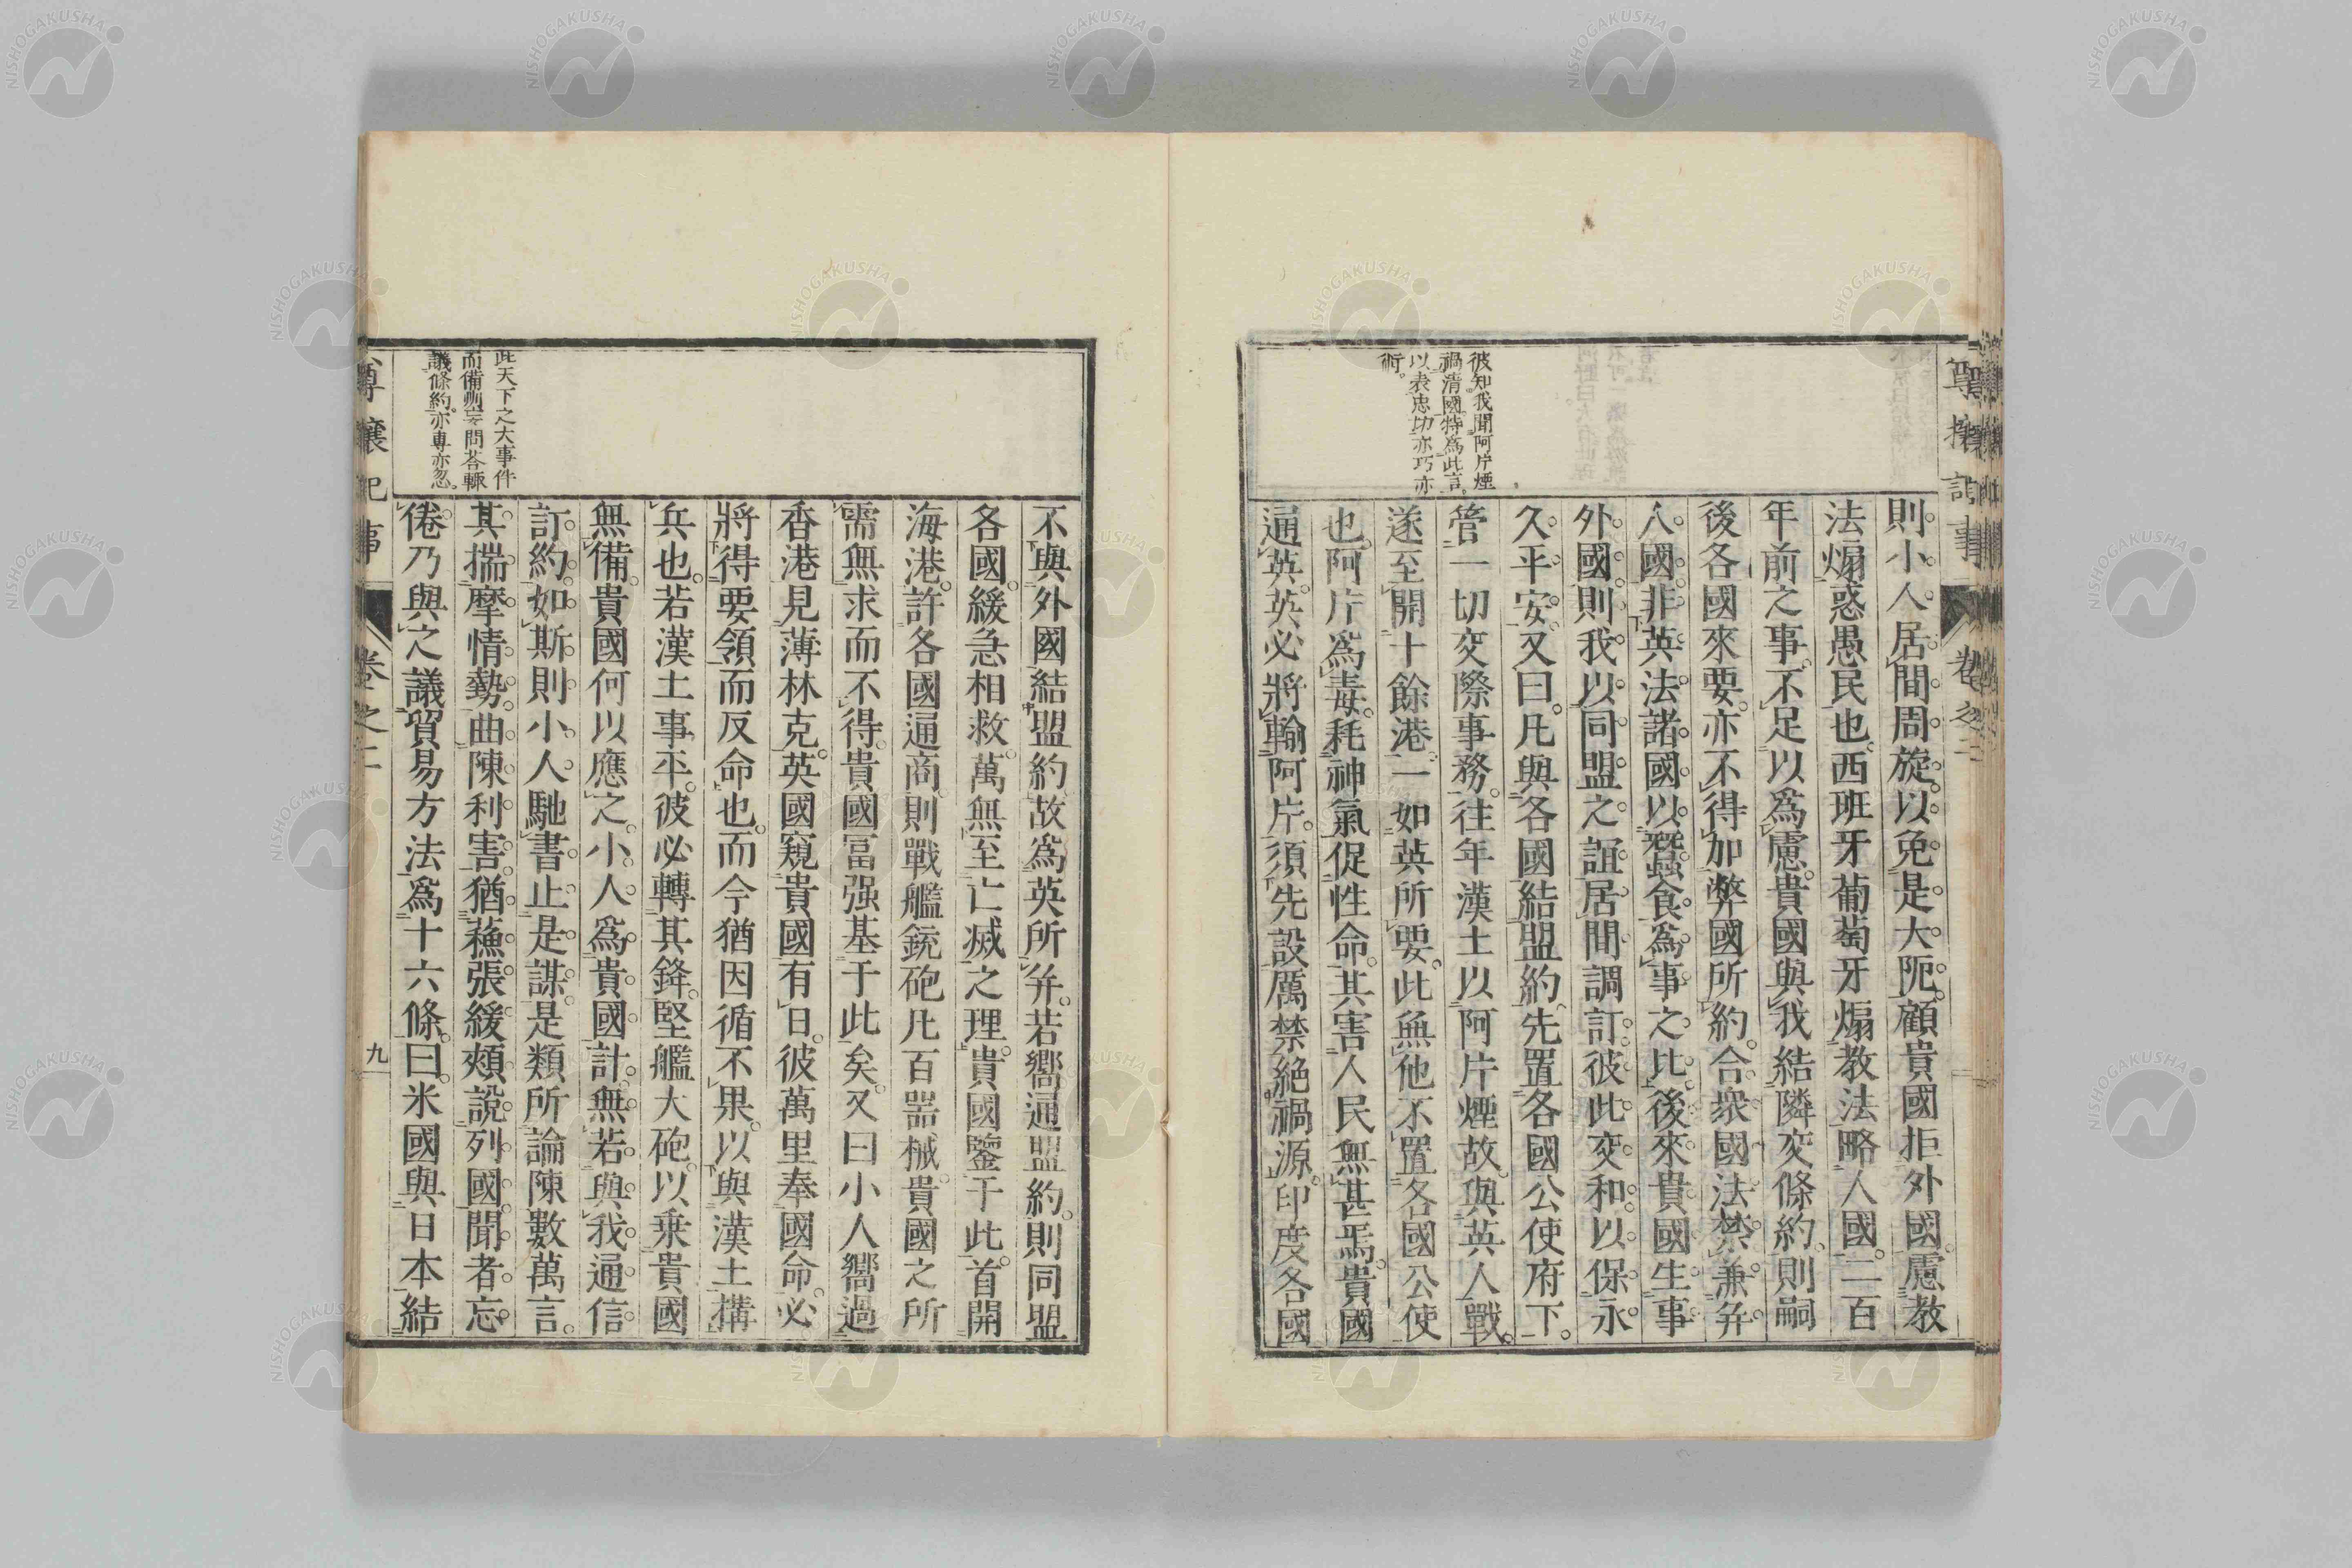 尊攘記事
卷之二
彼知我聞阿片煙
禍清國特爲此言
以表忠切亦巧亦
術。
則小人居間周旋以免是大阨。顧貴國拒外國。慮教
法煽惑愚民也。西班牙葡萄牙煽教法略人國。二百
年前之事。不足以爲慮。貴國與我結隣交條約。則嗣
後各國來要。亦不得加弊國所約。合衆國法禁兼并
人國。非英法諸國以蠶食爲事之比。後來貴國生事
外國。則我以同盟之誼居間調訂彼此交和。以保永
久平安。又曰。凡與各國結盟約。先置各國公使府下。
管一切交際事務。往年漢土以阿片煙故。與英人戰。
遂至開十餘港。一如英所要。此無他不置各國公使
也。阿片爲毒。耗神氣促性命。其害人民無甚焉。貴國
通英。英必將輸阿片。須先設厲禁絕禍源。印度各國
不與外國結盟約。故爲英所并。若嚮通盟約。則同盟
各國。緩急相救。萬無至亡滅之理。貴國鑒于此。首開
海港。許各國通商。則戰艦銃砲凡百器械。貴國之所
需無求而不得。貴國富强基于此矣。又曰小人嚮過
香港見薄林克。英國窺貴國有日。彼萬里奉國命。必
將得要領而反命也。而今猶因循不果。以與漢土搆
兵也。若漢土事平。彼必轉其鋒。堅艦大砲。以乘貴國
無備。貴國何以應之。小人爲貴國計。無若與我通信
訂約。如斯則小人馳書止是謀。是類所論陳數萬言。
其揣摩情勢。曲陳利害。猶蘓張緩頰說列國。聞者忘
倦。乃與之議貿易方法。爲十六條。曰。米國與日本結
此天下之大事件
而備州妄問荅輙
議條約。亦專亦忽。
尊攘記事
卷之二
九